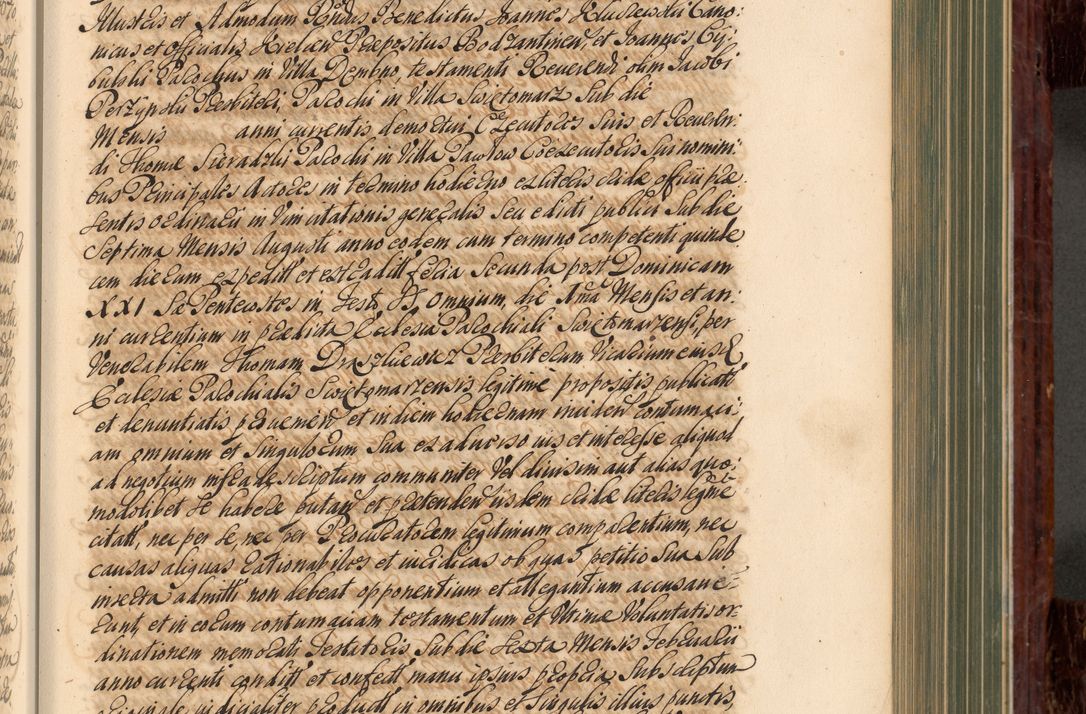 Illustris et Admodum Rndus Benedictus Joannes Kluszewski Cano:
nicus et Officialis Kielcen Præpositus Bodzantinen, et Joannes Cy:
bulski Parochus in Villa Dembno, testamenti Reverendi olim Jacobi
Perzynski Presbiteri, Parochi in Villa Swiętomarz Sub die
Mensis anni currentis demortui Executores Suis et Reveren:
di Thomæ Sieradzki Parochi in Villa Pawłow Coexecutoris Sui nomini:
bus Principales Actores in termino hodierno ex literis eidæ officii præ:
sentis ordinarii in Vim citationis generalis Seu edicti publici Sub die
Septima Mensis Augusti anno eodem cum termino competenti quinde:
cem dierum expeditt et est caditt feria Secunda post Dominicam
XXI Pentecostes in festo SS. Omnium, die Mensis et an:
ni currentium in prædicta Ecclesia Parochiali Swiętomarzensi, per
Venerabilem Thomam Draszkiewicz Presbiterum Vicarium ejusd
Ecclesiæ Parochialis Swiętomarzensis legitime propositis publicatt
et denuntiatis pervenien et in diem hodiernam inciden contumaci:
am omnium et Singulorum Sua ex adverso vis et interesse aliquot
ad negotium infra de Scriptum communiter Vel divisim aut alias quo:
modolibet Se habere putan et prætenden iisdem literis legme
citatt, nec per Se, nec per Procuratorem legitimum comparentium, nec
causas aliquas rationabiles et iuridicas ob quas petitio Sua Sub
inserta admitti non debeat opponentium et allegantium accusave:
runt, et in eorum contumaciam testamentum et Ultimæ Voluntatis or:
dinationem memorati Testatoris Sub die Sexta Mensis Februarii
anno currenti conditt et confectt manu ipsius propria Subscriptum
iudicialiter productt in omnibus et Singulis illius punctis,